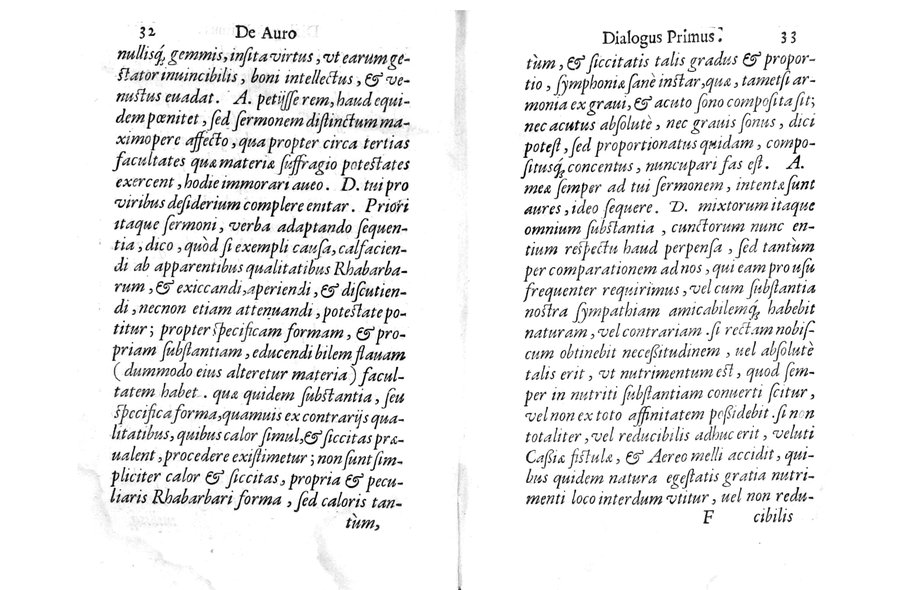 32 De Auro
nullisq́; gemmis, inſita virtus, vt earum ge-
ſtator inuincibilis, boni intellectus, & ve-
nuſtus euadat. A. petijſſe rem, haud equi-
dem pœnitet, ſed ſermonem diſtinctum ma-
ximopere affecto, qua propter circa tertias
facultates quæ materiæ ſuffragio poteſtates
exercent, hodie immorari aueo. D. tui pro
viribus deſiderium complere enitar. Priori
itaque ſermoni, verba adaptando ſequen-
tia, dico, quòd ſi exempli cauſa, calfacien-
di ab apparentibus qualitatibus Rhabarba-
rum, & exiccandi, aperiendi, & diſcutien-
di, necnon etiam attenuandi, poteſtate po-
titur; propter ſpecificam formam, & pro-
priam ſubſtantiam, educendi bilem flauam
(dummodo eius alteretur materia) facul-
tatem habet. quæ quidem ſubſtantia, ſeu
ſpecifica forma, quamuis ex contrarijs qua-
litatibus, quibus calor ſimul, & ſiccitas præ-
ualent, procedere exiſtimetur; non ſunt ſim-
pliciter calor & ſiccitas, propria & pecu-
liaris Rhabarbari forma, ſed caloris tan-
tùm,
Dialogus Primus. 33
tùm, & ſiccitatis talis gradus & propor-
tio, ſymphoniæ ſanè inſtar, quæ, tametſi ar-
monia ex graui, & acuto ſono compoſita ſit;
nec acutus abſolutè, nec grauis ſonus, dici
poteſt, ſed proportionatus quidam, compo-
ſitusq́; concentus, nuncupari fas eſt. A.
meæ ſemper ad tui ſermonem, intentæ ſunt
aures, ideo ſequere. D. mixtorum itaque
omnium ſubſtantia, cunctorum nunc en-
tium reſpectu haud perpenſa, ſed tantùm
per comparationem ad nos, qui eam pro uſu
frequenter requirimus, vel cum ſubſtantia
noſtra ſympathiam amicabilemq́; habebit
naturam, vel contrariam. ſi rectam nobiſ-
cum obtinebit neceßitudinem, uel abſolutè
talis erit, vt nutrimentum eſt, quod ſem-
per in nutriti ſubſtantiam conuerti ſcitur,
vel non ex toto affinitatem poßidebit. ſi non
totaliter, vel reducibilis adhuc erit, veluti
Caßiæ fiſtulæ, & Aereo melli accidit, qui-
bus quidem natura egeſtatis gratia nutri-
menti loco interdum vtitur, uel non redu-
F cibilis